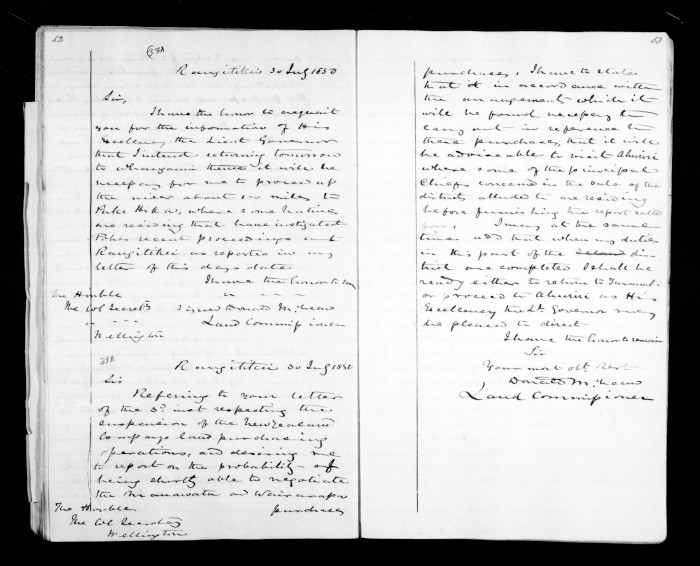 52
33A
Rangitikei 30 July 1850
Sir,
I have the honor to acquaint
you for the information of His
Excellency the Lieut Governor
that I intend returning tomorrow
to Whanganui thence it will be
necessary for me to proceed up
the river about 100 miles to
Puke Hika, where some natives
are residing that have instigated
recent proceedings at
Rangitikei as reported in my
letter of this days date.
I have the honor to
The Honble
The Col Secrety
Signed Donald McLean
Land Commissioner
Wellington
33B
Rangitikei 30 July 1850
Sir
Refering to your letter
of the 3d inst respecting the
suspension of the New Zealand
Compays land purchasing
operations, and desiring me
to report on the probability of
being shortly able to negotiate
the Manawatu and Wairarapa
purchases
The Honble
The Col Secretary
Wellington
53
purchases, I have to state
that it in accordance with
the arrangements which it
will be found necessary to
carry out in reference to
these purchases, that it will
be adviseable to visit Ahuriri
where some of the principal
Chiefs concerned in the sale of the
districts alluded to are residing
before furnishing the report called
for, I may at the same
time add that when my duties
in this part of the dis-
trict are completed I shall be
ready either to return to Taranaki
or proceed to Ahuriri as His
Excellency the Lt. Governor may
be pleased to direct
I have the honor to remain
Sir
Your most obt Servt
Donald McLean
Land Commissioner